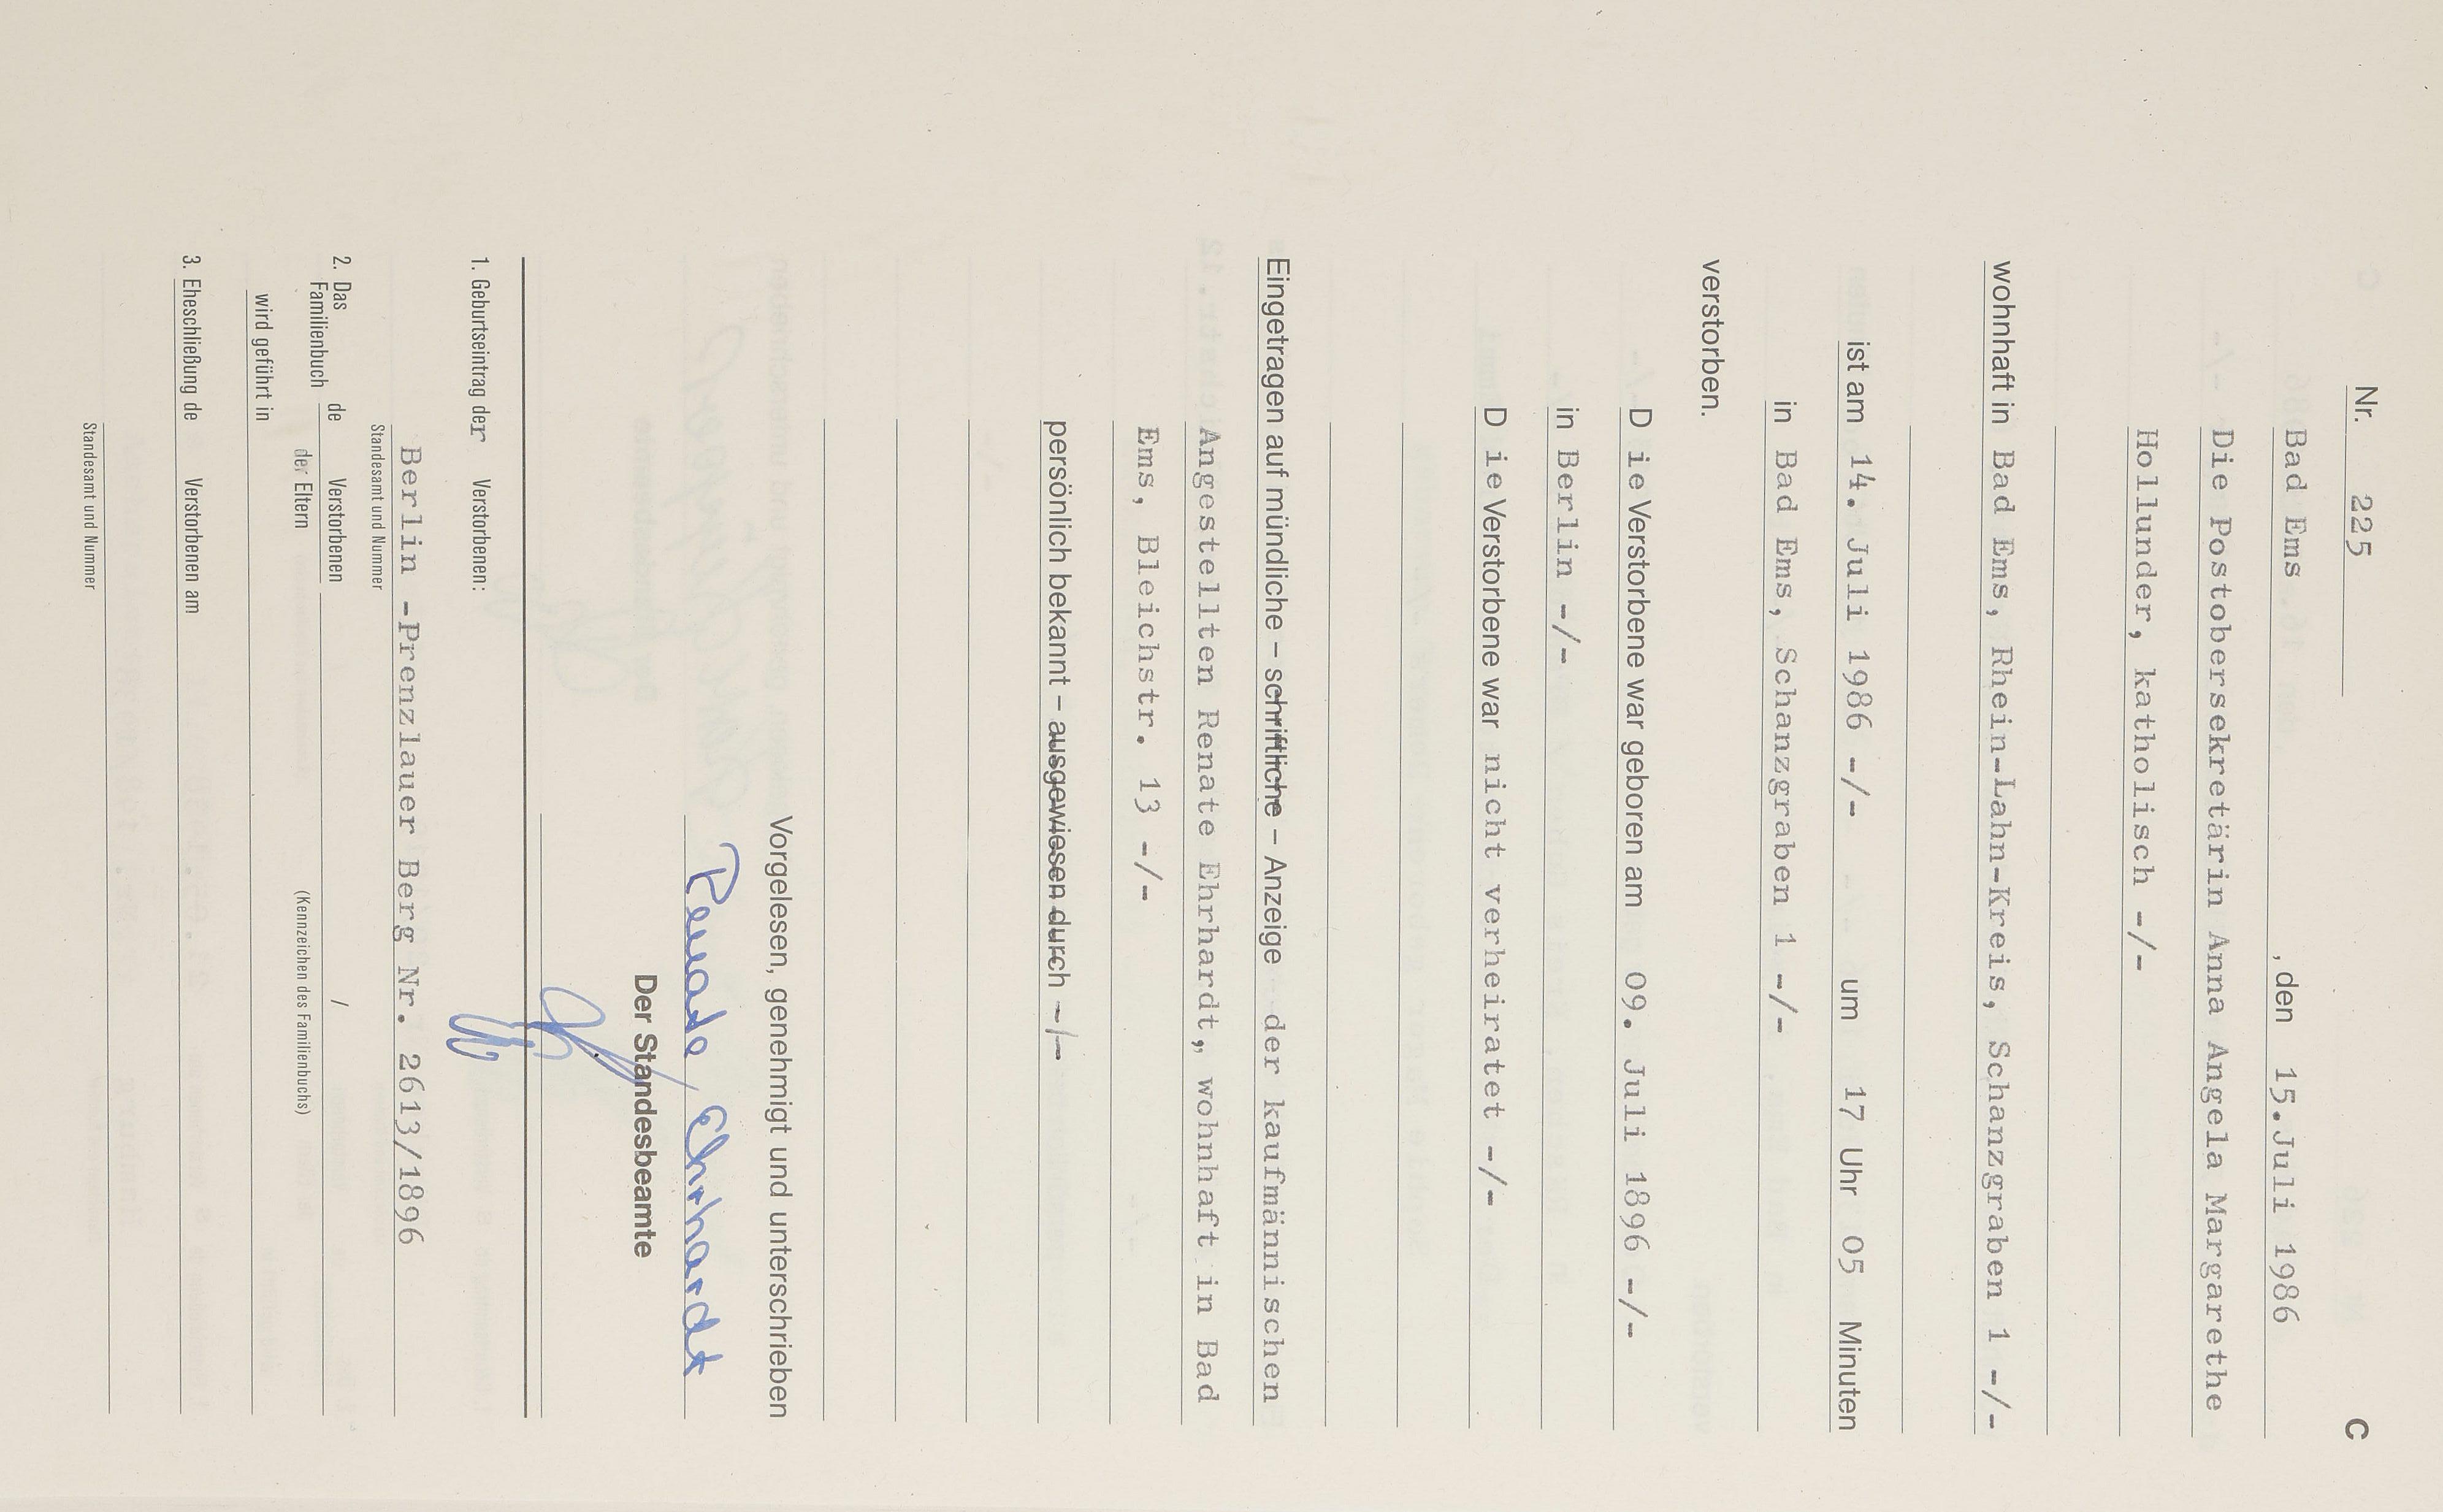 C
Nr. 225
Bad Ems , den 15.Juli 1986
Die Postobersekretärin Anna Angela Margarethe
Hollunder, katholisch -/-
wohnhaft in Bad Ems, Rhein-Lahn-Kreis, Schanzgraben 1 -/-
ist am 14. Juli 1986 -/- um 17 Uhr 05 Minuten
in Bad Ems, Schanzgraben 1 -/-
verstorben.
D ie Verstorbene war geboren am 09. Juli 1896 -/-
in Berlin -/-
D ie Verstorbene war nicht verheiratet -/-
Eingetragen auf mündliche – schriftliche – Anzeige der kaufmännischen
Angestellten Renate Ehrhardt, wohnhaft in Bad
Ems, Bleichstr. 13 -/-
persönlich bekannt – ausgewiesen durch -/-
Vorgelesen, genehmigt und unterschrieben
Renate Ehrhardt
Der Standesbeamte
1. Geburtseintrag der Verstorbenen:
Berlin -Prenzlauer Berg Nr. 2613/1896
Standesamt und Nummer
2. Das Familienbuch de Verstorbenen /
der Eltern (Kennzeichen des Familienbuchs)
wird geführt in
3. Eheschließung de Verstorbenen am
Standesamt und Nummer